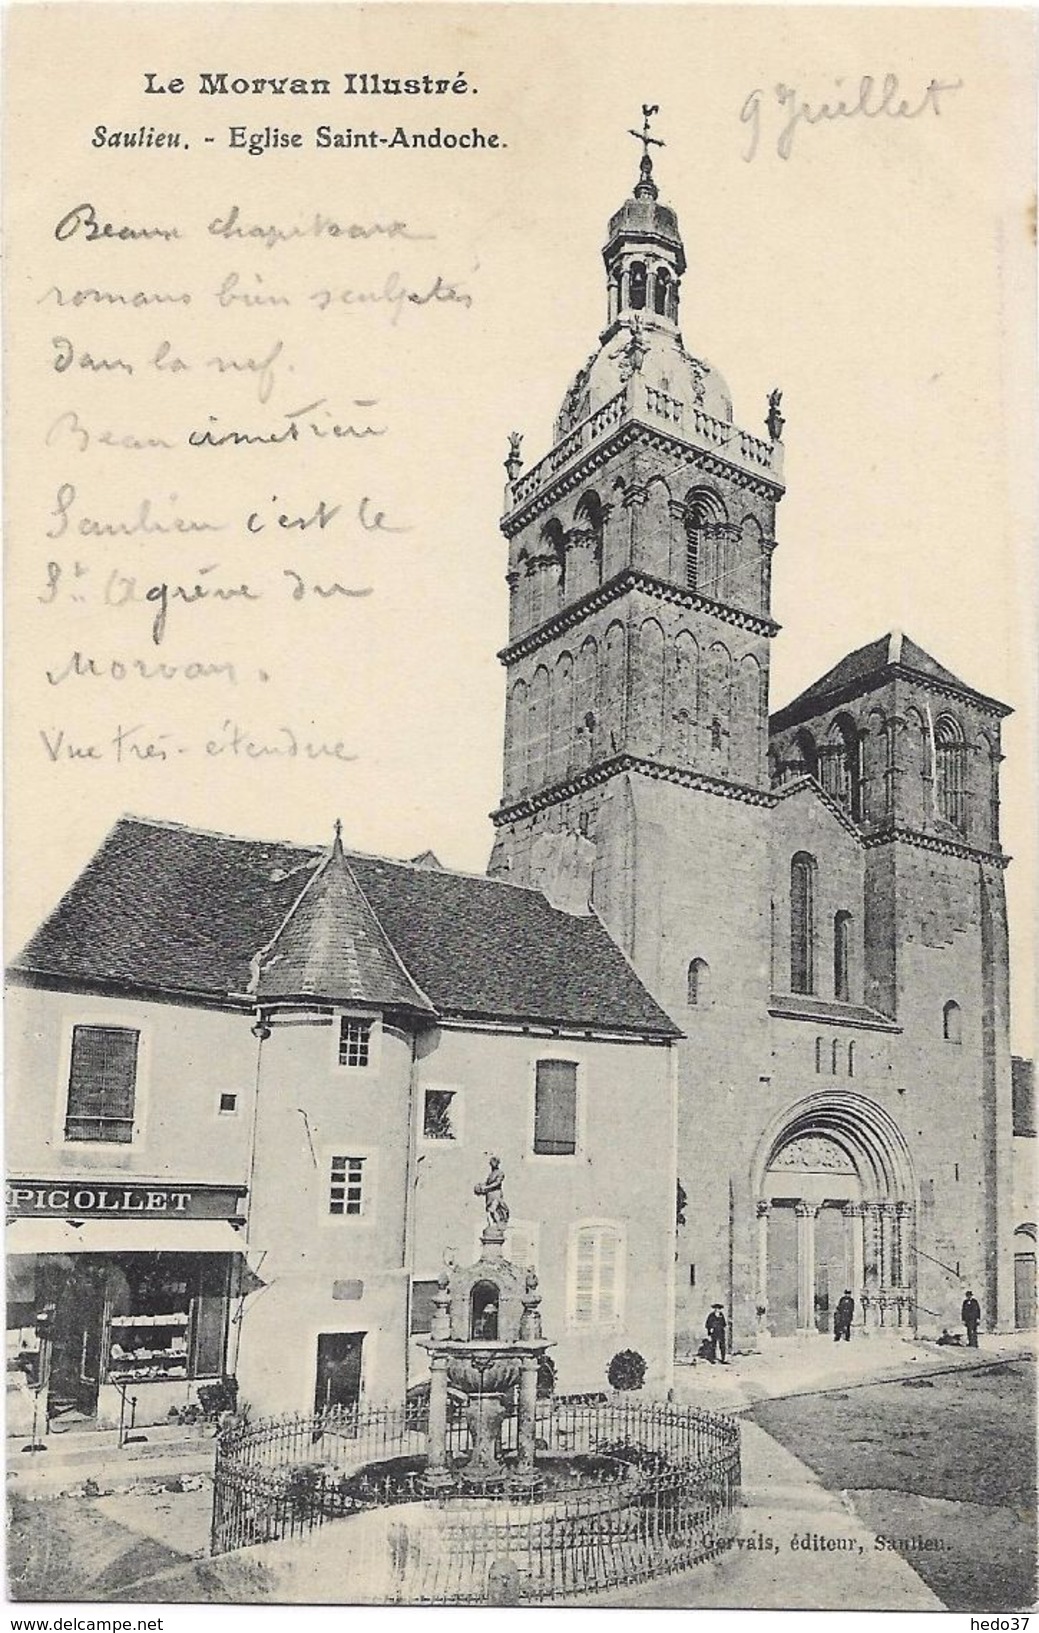 Le Morvan Illustré.
Saulieu. - Eglise Saint-Andoche.
9 Juillet
Beaux chapiteaux
romans bien sculptés
dans la nef.
Beau cimetière
Saulieu c'est le
St Agrève du
Morvan.
Vue très-étendue
PICOLLET
Gervais, éditeur, Saulieu.
delcampe.net
hedo37